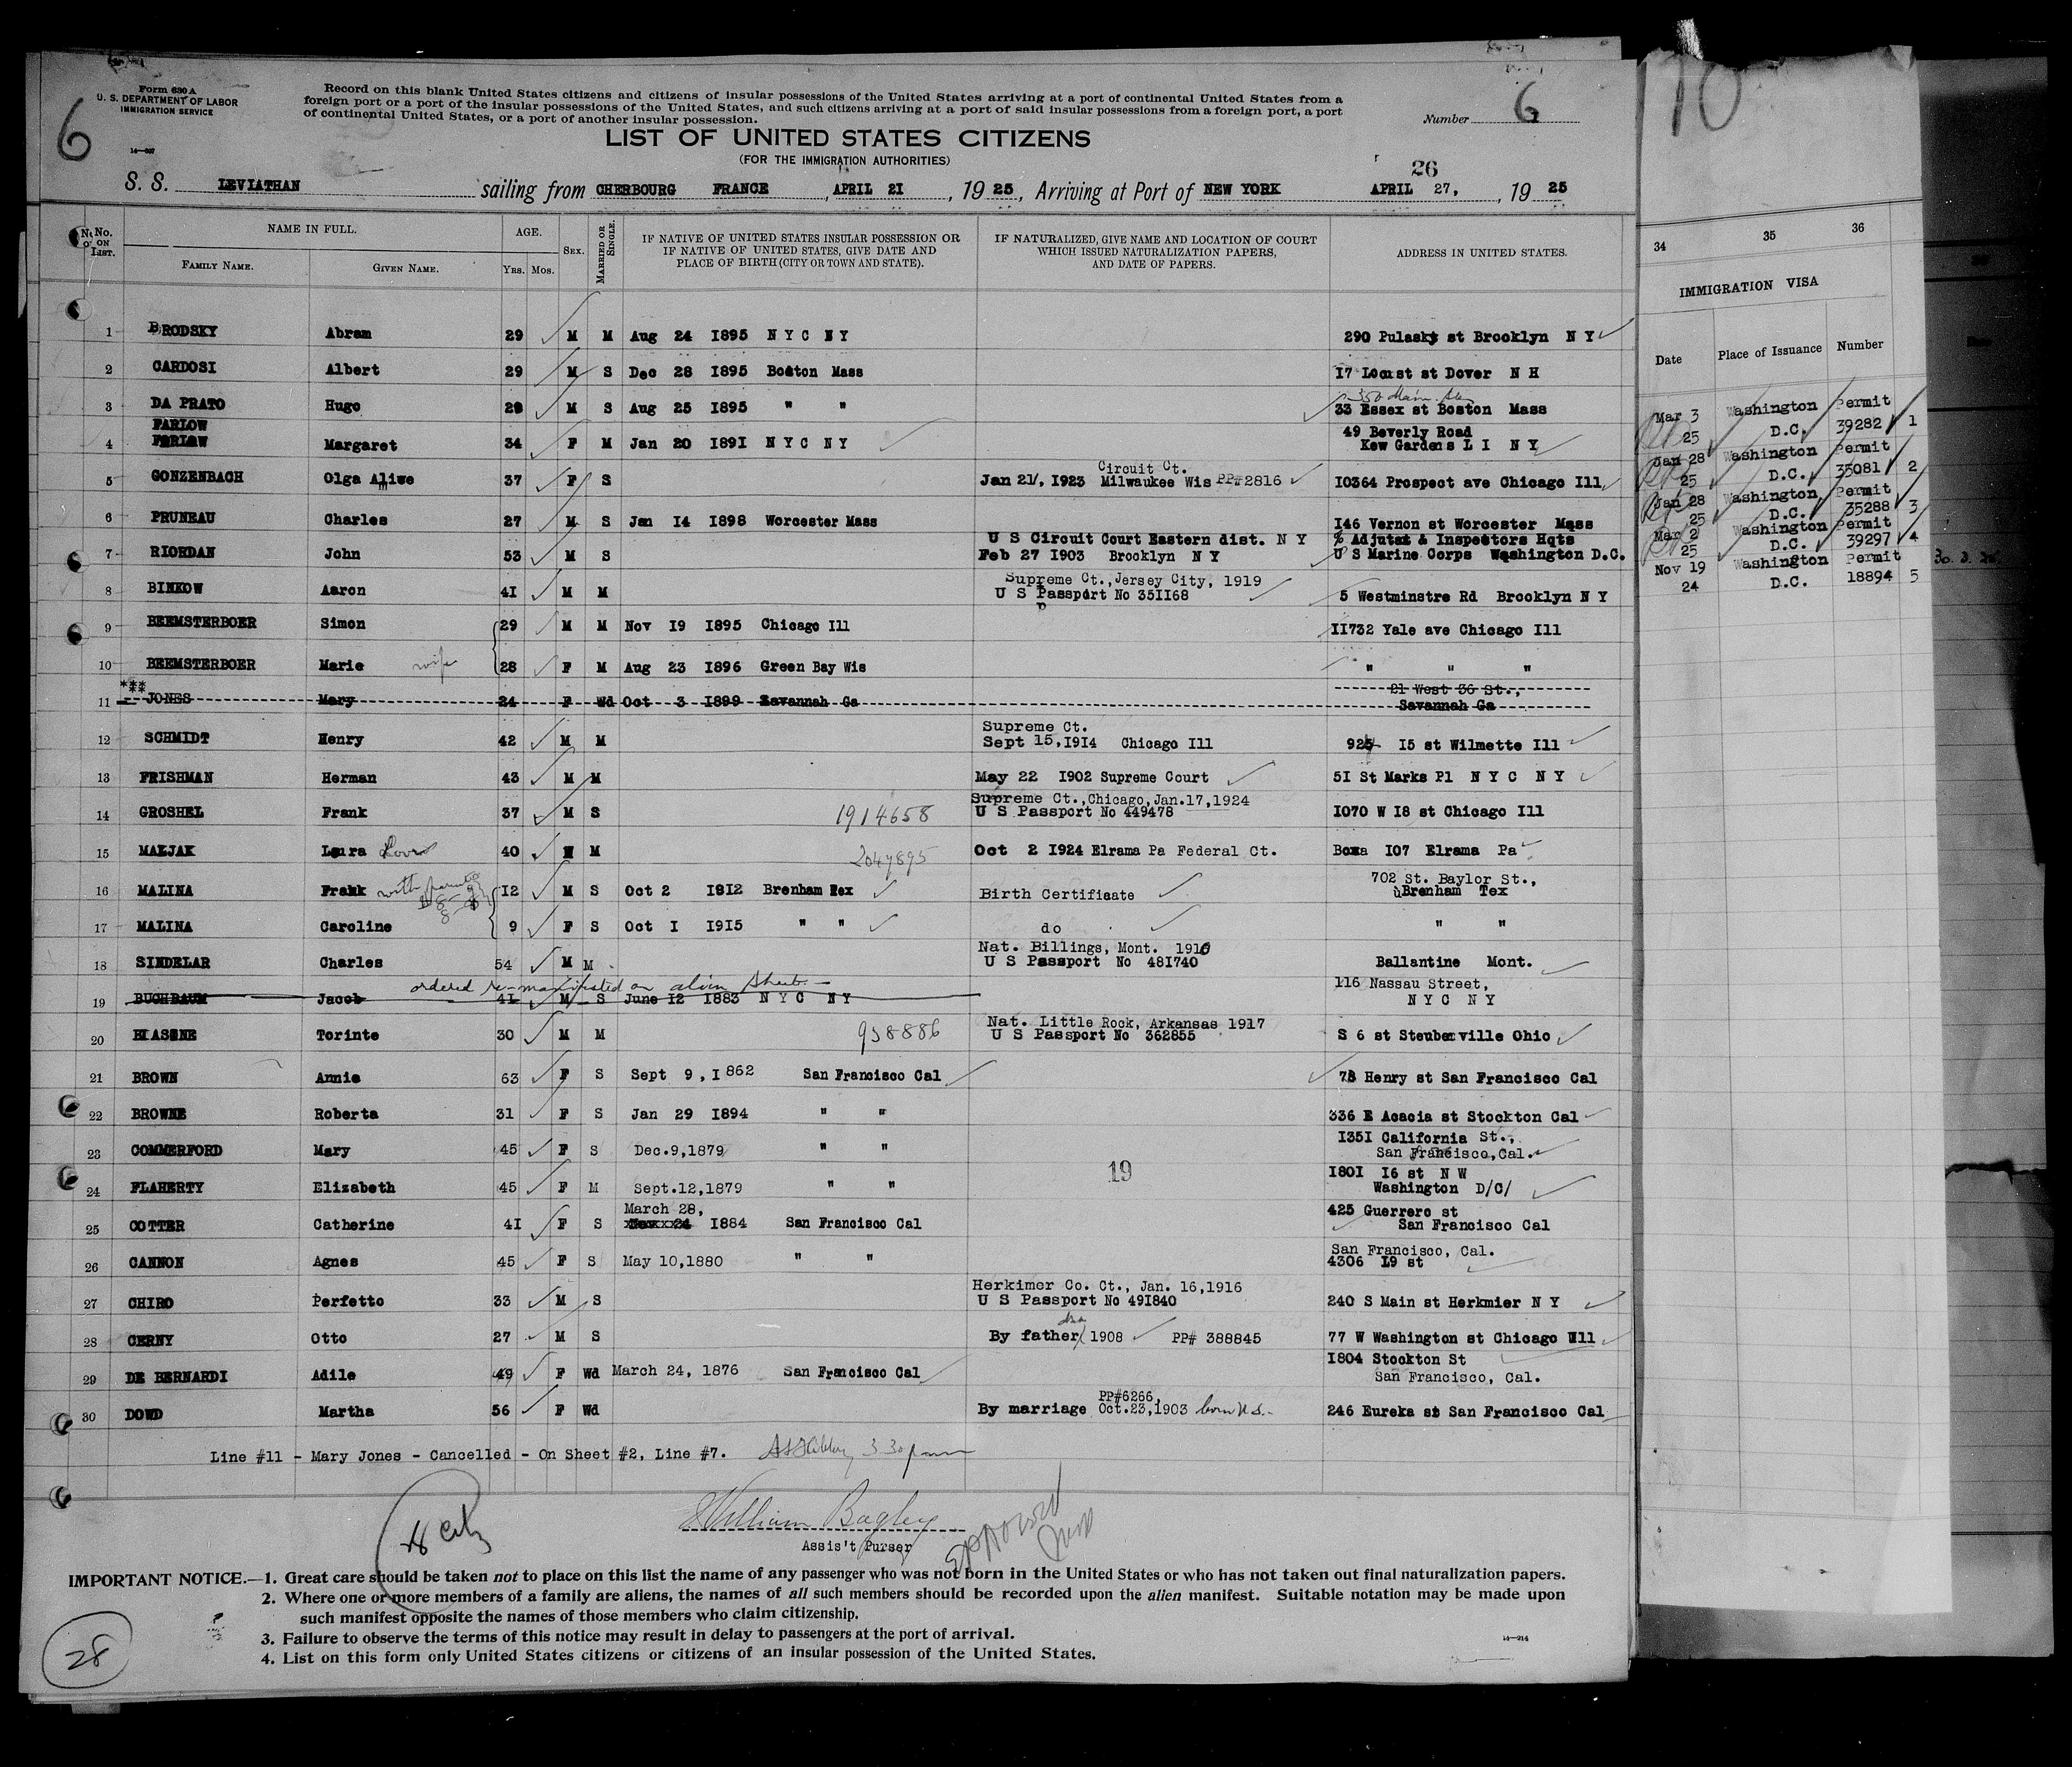 Form 630 A
U. S. DEPARTMENT OF LABOR
IMMIGRATION SERVICE
6
14—
Record on this blank United States citizens and citizens of insular possessions of the United States arriving at a port of continental United States from a
foreign port or a port of the insular possessions of the United States, and such citizens arriving at a port of said insular possessions from a foreign port, a port
of continental United States, or a port of another insular possession.
Number 6
LIST OF UNITED STATES CITIZENS
(FOR THE IMMIGRATION AUTHORITIES)
26
S. S. LEVIATHAN sailing from CHERBOURG FRANCE, APRIL 21, 1925, Arriving at Port of NEW YORK APRIL 27, 1925
No. ON LIST. NAME IN FULL. FAMILY NAME. GIVEN NAME. AGE. Yrs. Mos. SEX. MARRIED OR SINGLE. IF NATIVE OF UNITED STATES INSULAR POSSESSION OR IF NATIVE OF UNITED STATES, GIVE DATE AND PLACE OF BIRTH (CITY OR TOWN AND STATE). IF NATURALIZED, GIVE NAME AND LOCATION OF COURT WHICH ISSUED NATURALIZATION PAPERS, AND DATE OF PAPERS. ADDRESS IN UNITED STATES.
1 BRODSKY Abram 29 M M Aug 24 1895 N Y C N Y 290 Pulasky st Brooklyn N Y
2 CARDOSI Albert 29 M S Dec 28 1895 Boston Mass 17 Locust st Dover N H
350 Main
3 DA PRATO Hugo 29 M S Aug 25 1895 " " 33 Essex st Boston Mass
FARLOW 49 Beverly Road
4 Margaret 34 F M Jan 20 1891 N Y C N Y Kew Gardens L I N Y
Circuit Ct.
5 GONZENBACH Olga Aliwe 37 F S Jan 21/, 1923 Milwaukee Wis PP#2816 10364 Prospect ave Chicago Ill
6 PRUNEAU Charles 27 M S Jan 14 1898 Worcester Mass 146 Vernon st Worcester Mass
U S Circuit Court Eastern dist. N Y % Adjutat & Inspectors Hqts
7 RIORDAN John 53 M S Feb 27 1903 Brooklyn N Y U S Marine Corps Washington D.C.
Supreme Ct., Jersey City, 1919
8 BINKOW Aaron 41 M M U S Passport No 351168 5 Westminstre Rd Brooklyn N Y
9 BEEMSTERBOER Simon 29 M M Nov 19 1895 Chicago Ill 11732 Yale ave Chicago Ill
10 BEEMSTERBOER Marie wife 28 F M Aug 23 1896 Green Bay Wis " " "
*** 21 West 36 St.,
11 JONES Mary 24 F Wd Oct 3 1899 Savannah Ga Savannah Ga
Supreme Ct.
12 SCHMIDT Henry 42 M M Sept 15, 1914 Chicago Ill 925 15 st Wilmette Ill
13 FRISHMAN Herman 43 M M May 22 1902 Supreme Court 51 St Marks Pl N Y C N Y
Supreme Ct., Chicago, Jan.17,1924
14 GROSHEL Frank 37 M S 1914658 U S Passport No 449478 1070 W 18 st Chicago Ill
15 MALJAK 40 M M 2047895 Oct 2 1924 Elrama Pa Federal Ct. Boxa 107 Elrama Pa
702 St. Baylor St.,
16 MALINA Frank with parents 12 M S Oct 2 1912 Brenham Tex Birth Certificate Brenham Tex
17 MALINA Caroline 9 F S Oct 1 1915 " " do " "
Nat. Billings, Mont. 1910
18 SINDELAR Charles 54 M M U S Passport No 481740 Ballantine Mont.
ordered re-manifested on alien sheet.— 116 Nassau Street,
19 BUCHBAUM Jacob 41 M S June 12 1883 N Y C N Y N Y C N Y
Nat. Little Rock, Arkansas 1917
20 Torinte 30 M M 958886 U S Passport No 362855 S 6 st Steubenville Ohio
21 BROWN Annie 63 F S Sept 9, 1862 San Francisco Cal 78 Henry st San Francisco Cal
22 BROWNE Roberta 31 F S Jan 29 1894 " " 336 E Acacia st Stockton Cal
1351 California St.,
23 COMMERFORD Mary 45 F S Dec.9,1879 " " San Francisco, Cal.
19 1801 16 st N W
24 FLAHERTY Elizabeth 45 F M Sept.12,1879 " " Washington D/C/
March 28, 425 Guerrero st
25 COTTER Catherine 41 F S 1884 San Francisco Cal San Francisco Cal
San Francisco, Cal.
26 CANNON Agnes 45 F S May 10,1880 " " 4306 19 st
Herkimer Co. Ct., Jan. 16,1916
27 CHIRO Perfetto 33 M S U S Passport No 491840 240 S Main st Herkmier N Y
28 CERNY Otto 27 M S By father 1908 PP# 388845 77 W Washington st Chicago Ill
1804 Stockton St
29 DE BERNARDI Adile 49 F Wd March 24, 1876 San Francisco Cal San Francisco, Cal.
PP#6266,
30 DOWD Martha 56 F Wd By marriage Oct.23,1903 born U.S. 246 Eureka st San Francisco Cal
Line #11 - Mary Jones - Cancelled - On Sheet #2, Line #7. 3 30 pm
William Bagley
Assis't Purser
Approved
IMPORTANT NOTICE.—1. Great care should be taken not to place on this list the name of any passenger who was not born in the United States or who has not taken out final naturalization papers.
2. Where one or more members of a family are aliens, the names of all such members should be recorded upon the alien manifest. Suitable notation may be made upon
such manifest opposite the names of those members who claim citizenship.
3. Failure to observe the terms of this notice may result in delay to passengers at the port of arrival.
4. List on this form only United States citizens or citizens of an insular possession of the United States.
28
14—214
10
34 35 36
IMMIGRATION VISA
Date Place of Issuance Number
Mar 3 Washington Permit
25 D.C. 39282 1
Jan 28 Washington Permit
25 D.C. 35081 2
Jan 28 Washington Permit
25 D.C. 35288 3
Mar 2 Washington Permit
25 D.C. 39297 4
Nov 19 Washington Permit
24 D.C. 18894 5